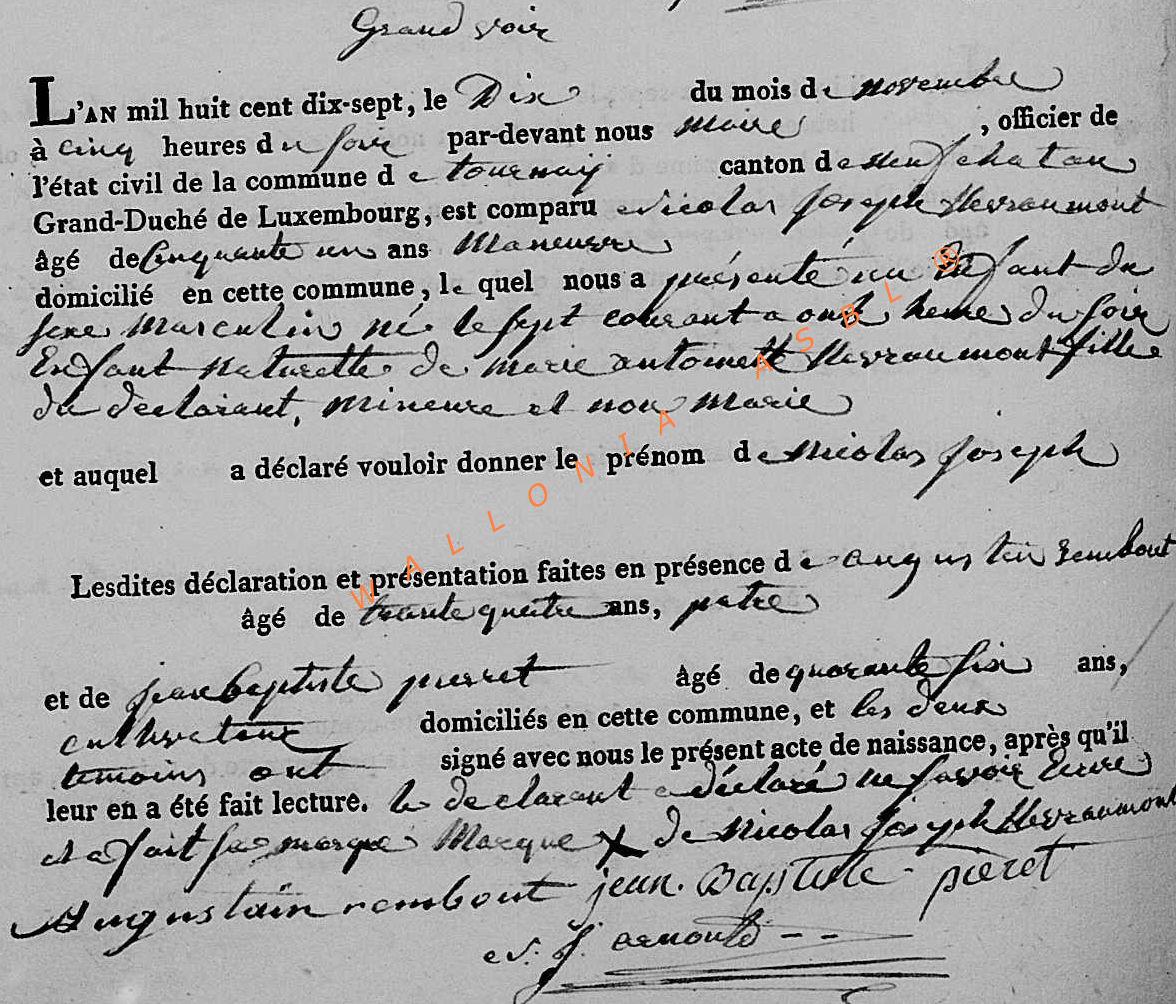 Grand voir
L'AN mil huit cent dix-sept, le Dix du mois de novembre
à cinq heures du soir par-devant nous maire , officier de
l'état civil de la commune de tournay canton de neufchatau
Grand-Duché de Luxembourg, est comparu Nicolas joseph Hevraumont
âgé de Cinquante un ans Maneuvre
domicilié en cette commune, le quel nous a présenté un Enfant du
sexe masculin né le sept courant a onse heures du soir
Enfant Naturelle de marie antoinett Hevraumont fille
du declarant, mineure et non marie
et auquel a déclaré vouloir donner le prénom de Nicolas joseph
Lesdites déclaration et présentation faites en présence de augustin rembout
âgé de trante quatre ans, patre
et de jean baptiste pierret âgé de quarante six ans,
cultivateur domiciliés en cette commune, et les deux
temoins ont signé avec nous le présent acte de naissance, après qu'il
leur en a été fait lecture. le declarant a déclaré ne savoir Ecrire
et a fait sa marque Marque X de Nicolas joseph Hevraumont
Augustain rembout jean. Baptiste pieret
N. J. arnould
WALLONIA ASBL ®